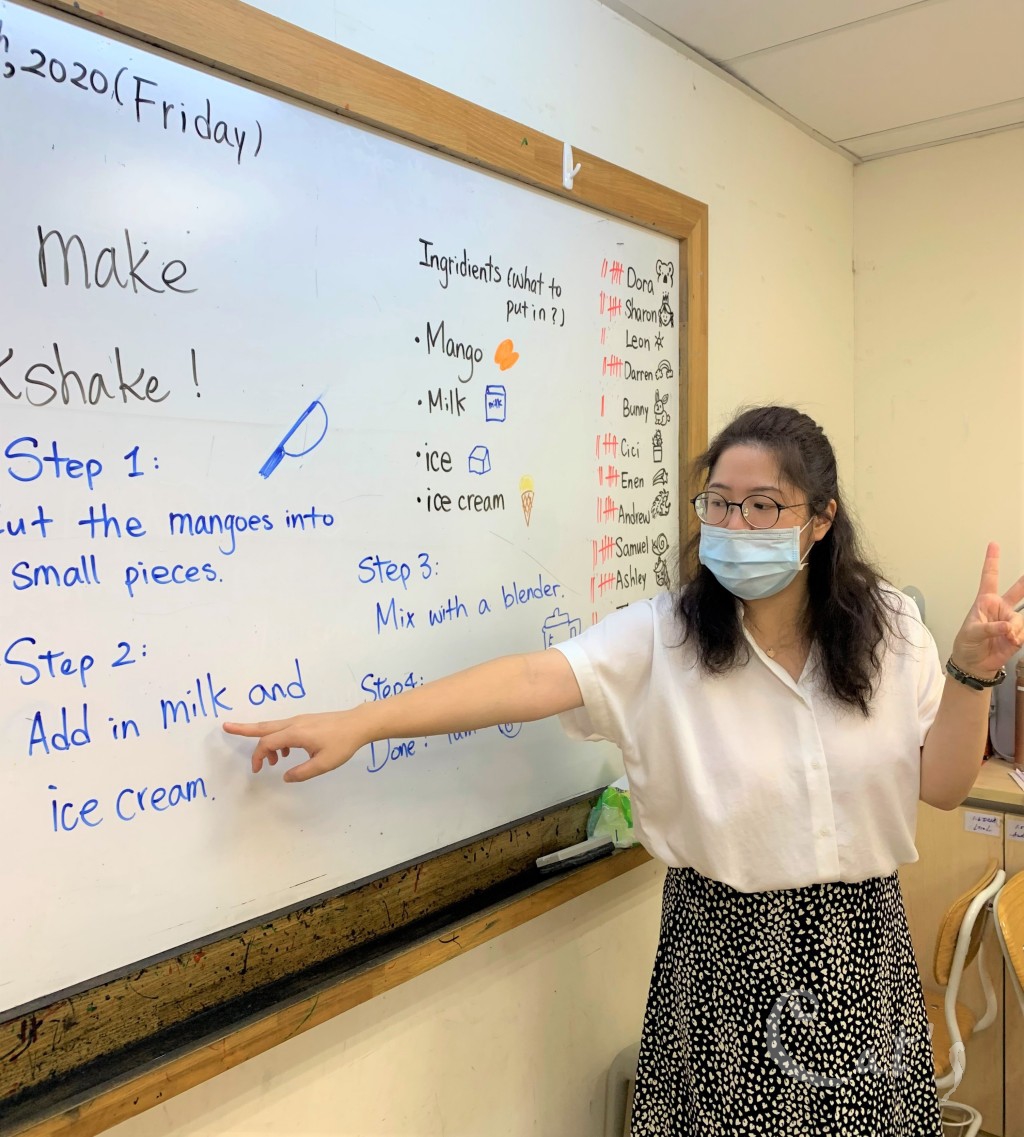 , 2020, (Friday)
make
kshake!
Step 1:
Cut the mangoes into
small pieces.
Step 2:
Add in milk and
ice cream.
Ingridients (what to
put in?)
• Mango
• Milk
milk
• ice
• ice cream
Step 3:
Mix with a blender.
Step 4:
Done!
Dora
Sharon
Leon
Darren
Bunny
Cici
Enen
Andrew
Samuel
Ashley
Cat